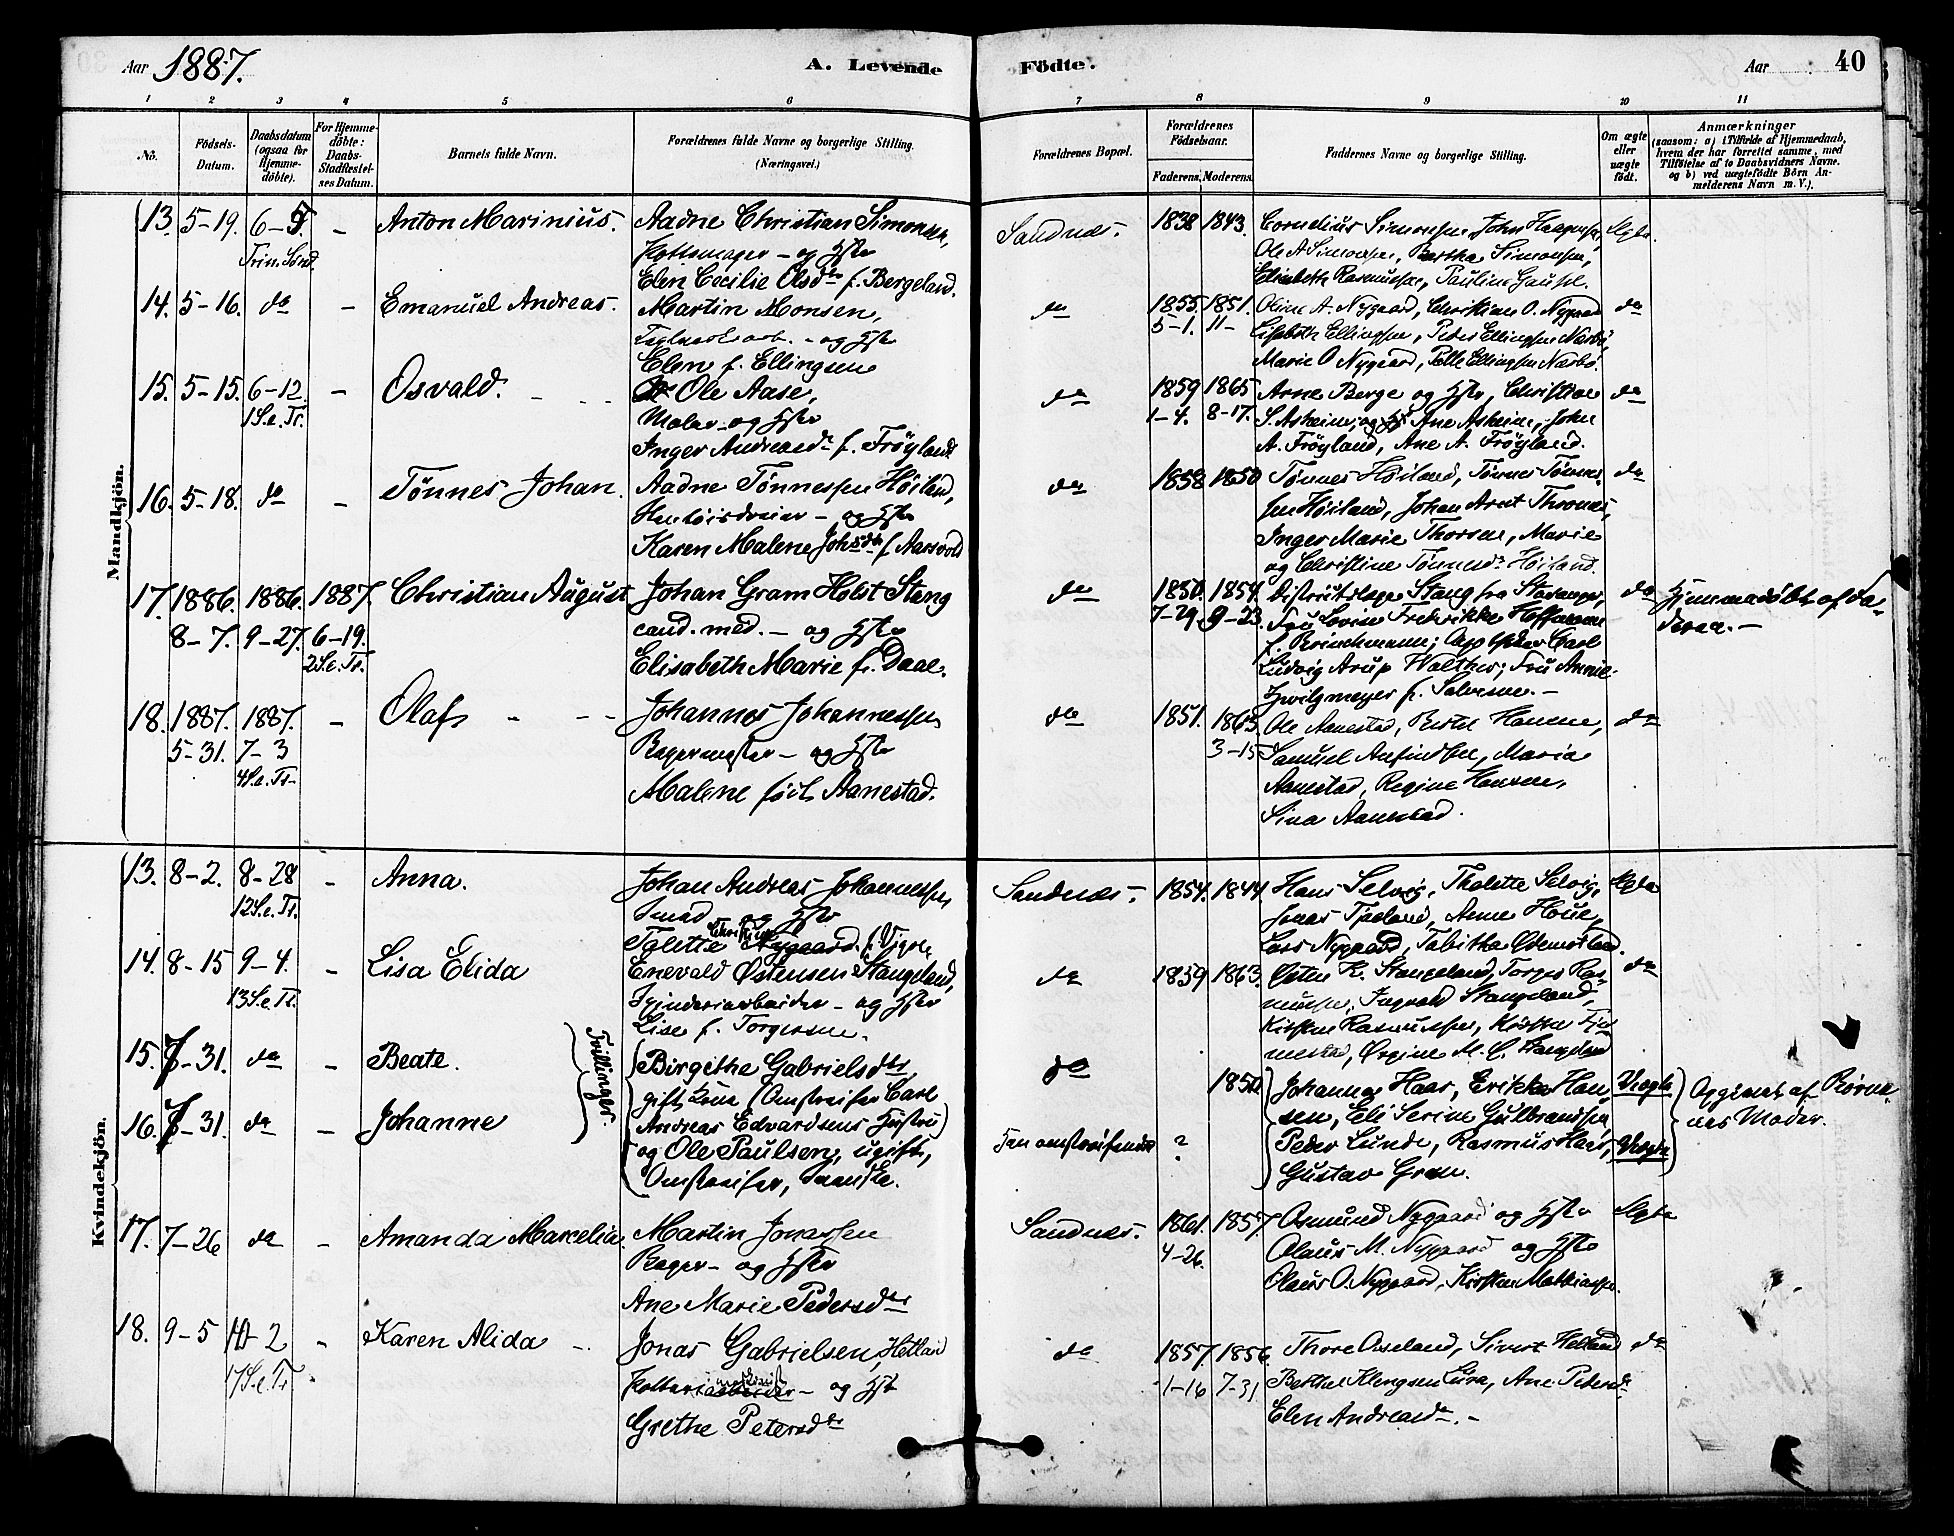 Aar 1887. A. Levende Födte. Aar 40
1 2 3 4 5 6 7 8 9 10 11
No. Födsels-Datum. Daabsdatum (ogsaa for Hjemmedöbte). For Hjemmedöbte: Daabs-Stadfæstelses Datum. Barnets fulde Navn. Forældrenes fulde Navne og borgerlige Stilling. (Næringsvei.) Forældrenes Bopæl. Forældrenes Födselsaar. Faderens. Moderens. Faddernes Navne og borgerlige Stilling. Om ægte eller uægte födt. Anmærkninger
(saasom: a) i Tilfælde af Hjemmedaab,
hvem der har forrettet samme, med
Tilföielse af to Daabsvidners Navne.
og b) ved uægtefödte Börn An-
melderens Navn m. V.).
Mandkjön.
13. 5-19. 6-5. Trin. Sönd. - Anton Marinius.
Aadne Christian Simonsen,
Pottemager - og Hstr
Elen Cecilie Olsdtr f. Bergeland.
Sandnes. 1838 1843.
Cornelius Simonsen, John Haagensen,
Ole A Simonsen, Bertha Simonsen,
Elisabeth Rasmussen, Pauline Gausel.
Ægte.
14. 5-16. do - Emanuel Andreas.
Martin Monsen,
- og Hstr
Elen f. Ellingsen
do 1855. 5-1. 1851. 11-
Oline A. Nygaard, Christian O. Nygaard
Lisabeth Ellingsen, Peder Ellingsen Narbö,
Marie O Nygaard, Pelle Ellingsen Narbö.
do
15. 5-15. 6-12. 1 S. e. Tr. - Osvald.
Ole Aase,
Maler - og Hstr
Inger Andreasdr f. Fröyland.
do 1859 1-4. 1865 8-17.
Arne Berge og Hstr, Christian
S. Asheim, og Hstr Ane Asheim, John
A. Fröyland, Ane A. Fröyland.
do
16. 5-18. do - Tönnes Johan.
Aadne Tönnessen Höiland,
- og Hstr
Karen Malene Johsdtr f. Aarsvold
do 1858 1850
Tönnes Höiland, Tönnes Tönnes-
sen Höiland, Johan Arnt Thorsen,
Inger Marie Thorsen, Marie
og Christine Tönnesdr Höiland.
do
17. 1886. 8-7. 1886. 9-27. 1887. 6-19. 2 S. e. Tr. Christian August
Johan Gram Holst Stang
cand. med. - og Hstr
Elisabeth Marie f. Daae.
do 1850. 7-29. 1854. 9-23.
Distriktslæge Stang fra Stavanger,
Fru Lovise Fredrikke Hoffmann
f. Brinchmann; Carl
Ludvig Arup Walther; Fru Annie
Zwilgmeyer f. Salvesen. -
do Hjemmedöbt af Fa-
deren. -
18. 1887. 5-31. 1887. 7-3 4 S. e. Tr. - Olaf
Johannes Johannessen
Bagermester - og Hstr
Malene födt Aanestad.
do 1851. 1863. 3-15
Ole Aanestad, Bertel Hanssen,
Samuel Anfindsen, Maria
Aanestad, Regine Hansen,
Sina Aanestad.
do
Kvindekjön.
13. 8-2. 8-28 12 S. e. Tr. - Anna.
Johan Andreas Johannessen,
Smed og Hstr
Talette Christine Nygaard.
Sandnes. 1854. 1844
Hans Selvig, Thalette Selvig,
Jonas Tjeland, Anne Houe,
Lars Nygaard, Tabitha Ødemotland.
Ægte
14. 8-15 9-4. 13 S. e. Tr. - Lisa Elida
Enevald Østensen Stangeland,
Spinderiarbeider - og Hstr
Lise f. Torgersen.
do 1859 1863.
Østen K. Stangeland, Torger Ras-
mussen, Ingvald Stangeland,
Kirsten Rasmussen, Kirsten Tjæ-
mestad, Orgine M. C. Stangeland
do
15. 7-31. do - Beate.
16. 7-31. do - Johanne
Tvillinger.
Birgithe Gabrielsdtr
gift Kone (Omstreifer Carl
Andreas Edvardsens Hustru)
og Ole Paulsen, ugift,
Omstreifer, Svenske.
do
Fan omstreifende
1850. ?
Johannes Haar, Erikka Han-
sen, Eli Serine Gulbrandsen,
Peder Lunde, Rasmus Haar,
Gustav Gren.
Uægte
Uægte
Opgivet af Börne-
nes Moder.
17. 7-26 do - Amanda Marcelia.
Martin Jonassen
Bager - og Hstr
Ane Marie Pedersdtr
Sandnes. 1861. 4-26. 1857.
Osmund Nygaard og Hstr
Olaus M. Nygaard og Hstr
Olaus O. Nygaard, Kirsten Mathiassen.
Ægte
18. 9-5 10-2 17 S. e. Tr. - Karen Alida
Jonas Gabrielsen, Hetland
Potteriarbeider - og Hst
Grethe Petersdtr
do 1857. 1-16 1856. 7-31
Thore Osseland, Sivert Hetland
Berthe Klengsen Lura, Ane Petersdr
Elen Andreasdr. -
do